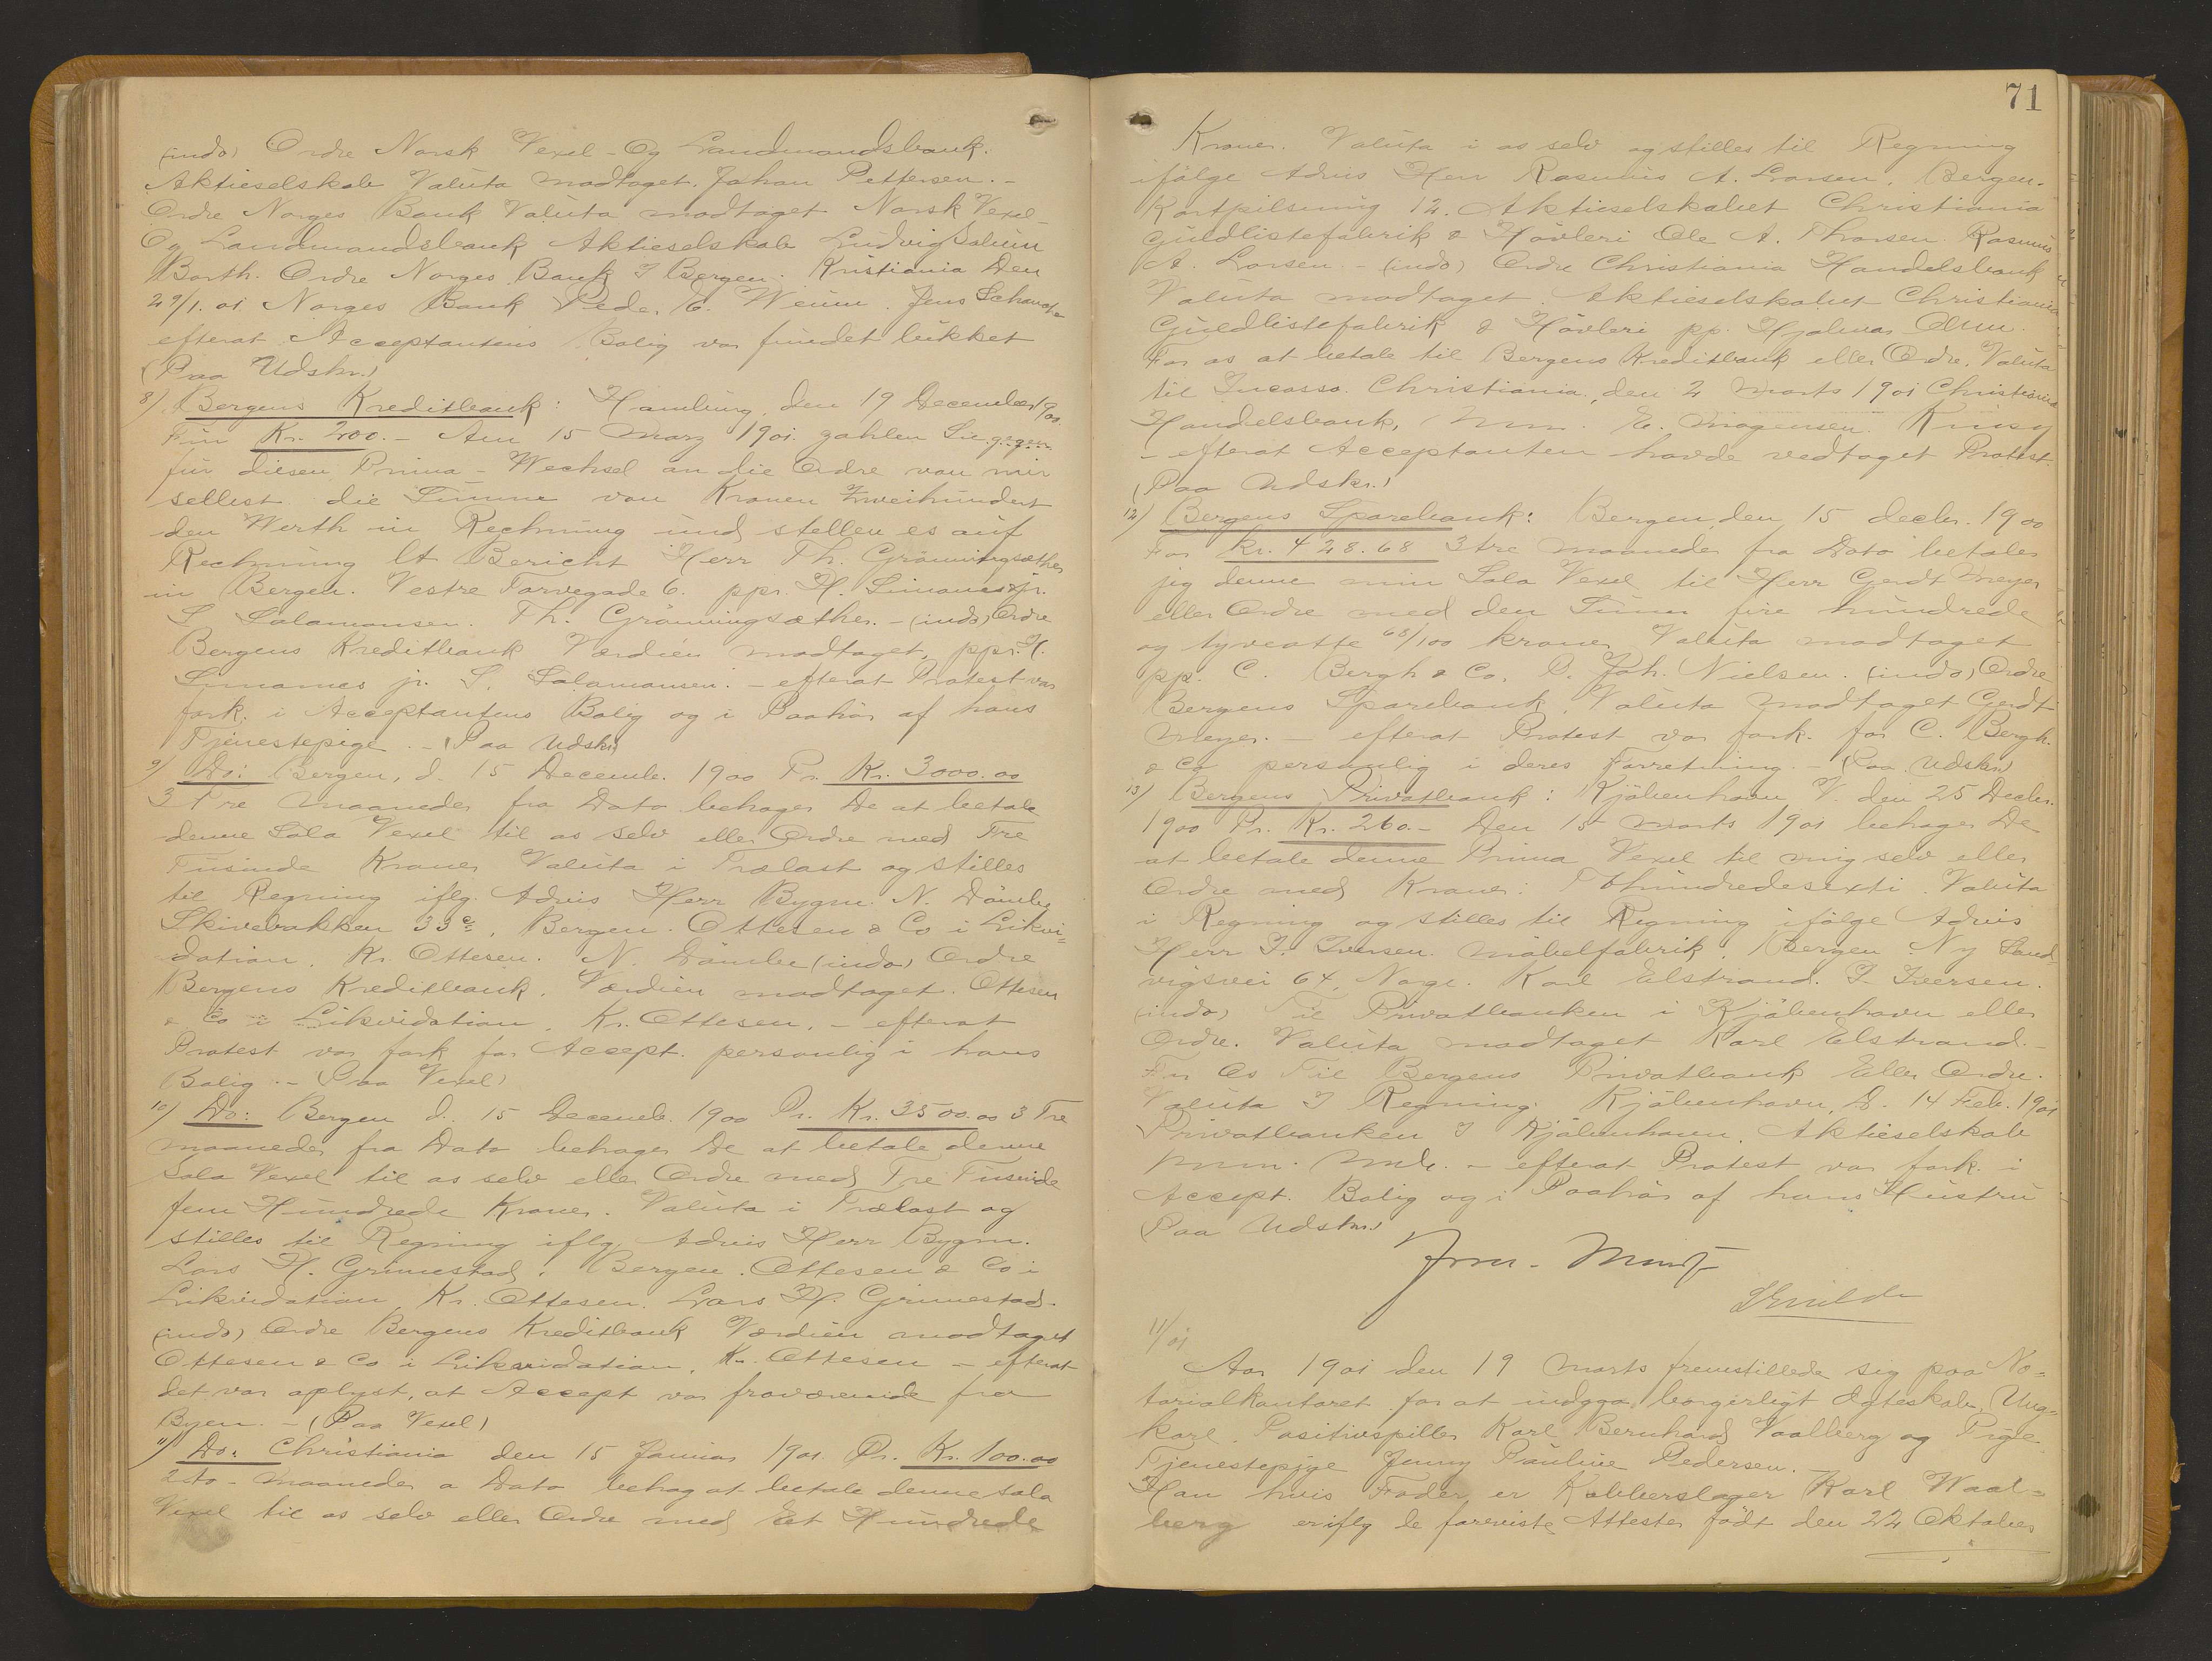 (indo) Ordre Norsk Vexel- Og Landmandsbank.
Aktieselskab Valuta modtaget. Johan Pettersen. -
Ordre Norges Bank Valuta modtaget Norsk Vexel-
Og Landmandsbank Aktieselskab Ludvig
Barth. Ordre Norges Bank I Bergen. Kristiania Den
29/1. 01. Norges Bank Peder C. Jens
efterat Acceptantens Bolig var fundet lukket
(Paa Udskr.)
8) Bergens Kreditbank: Hamburg, den 19 December 1900.
Für Kr. 200.- Am 15 Marz 1901. zahlen Sie gegen
für diesen Prima-Wechsel an die Ordre von mir
selbst die Summe von Kronen Zweihundert
den Werth in Rechnung und stellen es auf
Rechnung lt Bericht Herr Th. Grönningsæther
in Bergen. Vestre Torvegade 6. ppr. H. jr.
S. Salomonsen. Th. Grönningsæther. - (indo) Ordre
Bergens Kreditbank Værdien modtaget, ppr. H.
jr. S. Salomonsen. - efterat Protest var
fork. i Acceptantens Bolig og i Paahör af hans
Tjenestepige. - (Paa Udskr)
9) Do: Bergen, d. 15 Decemb. 1900 Pr. Kr. 3000.00
3 Tre Maaneder fra Dato behager De at betale
denne Sola Vexel til os selv eller Ordre med Tre
Tusinde Kroner Valuta i Trælast og stilles
til Regning iflg. Advis Herr Bygm. N. Dömbe
Skivebakken 33c, Bergen. Ottesen & Co i Likvi=
dation. Kr. Ottesen. N. Dömbe (indo) Ordre
Bergens Kreditbank. Værdien modtaget. Ottesen
& Co i Likvidation. Kr. Ottesen. - efterat
Protest var fork for Accept. personlig i hans
Bolig. - (Paa Vexel)
10) Do: Bergen d. 15 Decemb. 1900 Pr. Kr. 3500.00 3 Tre
maaneder fra Dato behager De at betale denne
Sola Vexel til os selv eller Ordre med Tre Tusinde
fem Hundrede Kroner. Valuta i Trælast og
stilles til Regning iflg. Advis Herr Bygm.
Lars H. Grimestad, Bergen. Ottesen & Co i
Likvidation Kr. Ottesen. Lars H. Grimestad.
(indo) Ordre Bergens Kreditbank Værdien modtaget
Ottesen & Co i Likvidation. Kr. Ottesen - efterat
det var oplyst, at Accept var fraværende fra
Byen. - (Paa Vexel)
11) Do: Christiania den 15 Januar 1901. Pr. Kr. 100.00
2 to - Maaneder a Dato behag at betale denne Sola
Vexel til os selv eller Ordre med Et Hundrede
71
Kroner. Valuta i os selv og stilles til Regning
ifölge Advis Herr Rasmus A. Larsen, Bergen.
12. Aktieselskabet Christiania
Guldlistefabrik & Hövleri Ole A. Thorsen. Rasmus
A. Larsen - (indo) Ordre Christiania Handelsbank
Valuta modtaget. Aktieselskabet Christiania
Guldlistefabrik & Hövleri pp. Hjalmar
For os at betale til Bergens Kreditbank eller Ordre. Valuta
til Incasso. Christiania, den 2 Marts 1901 Christiania
Handelsbank, E. Mogensen.
- efterat Acceptanten havde vedtaget Protest.
(Paa Udskr.)
12) Bergens Sparebank: Bergen, den 15 decbr. 1900
For Kr. 428.68 3 tre maaneder fra Dato betaler
jeg denne min Sola Vexel til Herr Gerdt Meyer
eller Ordre med den Summ fire hundrede
og tyveotte 68/100 kroner Valuta modtaget
pp. C. Bergh & Co. D. Joh. Nielsen. (indo) Ordre
Bergens Sparebank. Valuta modtaget Gerdt
Meyer. - efterat Protest var fork. for C. Bergh.
& Co personlig i deres Forretning. - (Paa Udskr)
13) Bergens Privatbank: Kjöbenhavn V. den 25 Decbr.
1900 Pr. Kr. 260.- Den 15 Marts 1901 behager De
at betale denne Prima Vexel til mig selv eller
Ordre med Kroner: Tohundredesexti. Valuta
i Regning og stilles til Regning ifölge Advis
Herr I. Iversen. Möbelfabrik. Bergen. Ny Sand=
vigsvei 64, Norge. Karl Elstrand. I. Iversen.
(indo) Til Privatbanken i Kjöbenhavn eller
Ordre. Valuta modtaget Karl Elstrand. -
For Os Til Bergens Privatbank Eller Ordre.
Valuta I Regning. Kjöbenhavn, D. 14 Feb. 1901
Privatbanken I Kjöbenhavn. Aktieselskab
- efterat Protest var fork. i
Accept. Bolig og i Paahör af hans Hustru -
Paa Udskr.)
11/01
Aar 1901 den 19 Marts fremstillede sig paa No=
tarialkontoret for at indgaa borgerligt Ægteskab, Ung=
karl. Positivspiller Karl Bernhard Vaalberg og Pige
Tjenestepige Jenny Pauline Pedersen. -
Han hvis Fader er Kobberslager Karl Waal=
berg er iflg de foreviste Attester födt den 22 Oktober